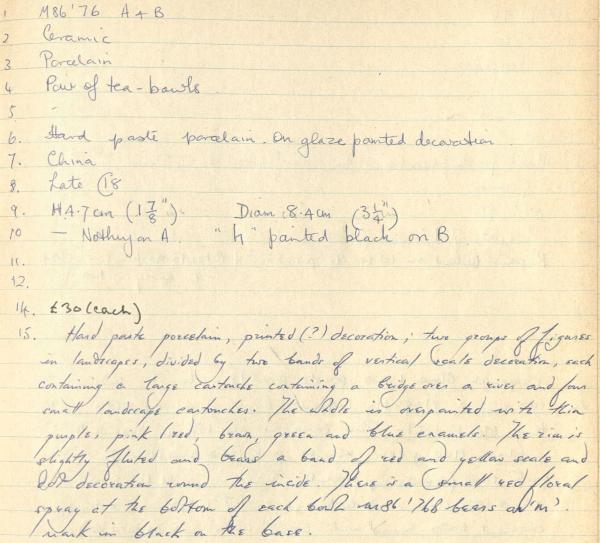 1 M86'76 A + B
2 Ceramic
3 Porcelain
4 Pair of tea-bowls
5 -
6. Hard paste porcelain. On glaze painted decoration
7. China
8. Late C18
9. H4.7cm (1 7/8") Diam 8.4cm (3 1/4")
10 — Nothing on A. "h" painted black on B
11.
12.
14. £30 (each)
15. Hard paste porcelain, printed (?) decoration; two groups of figures
in landscapes, divided by two bands of vertical scale decoration, each
containing a large cartouche containing a bridge over a river and four
small landscape cartouches. The whole is overpainted with thin
purple, pink / red, brown, green and blue enamels. The rim is
slightly fluted and bears a band of red and yellow scale and
dot decoration round the inside. There is a small red floral
spray at the bottom of each bowl M86'76B bears an 'm'.
mark in black on the base.